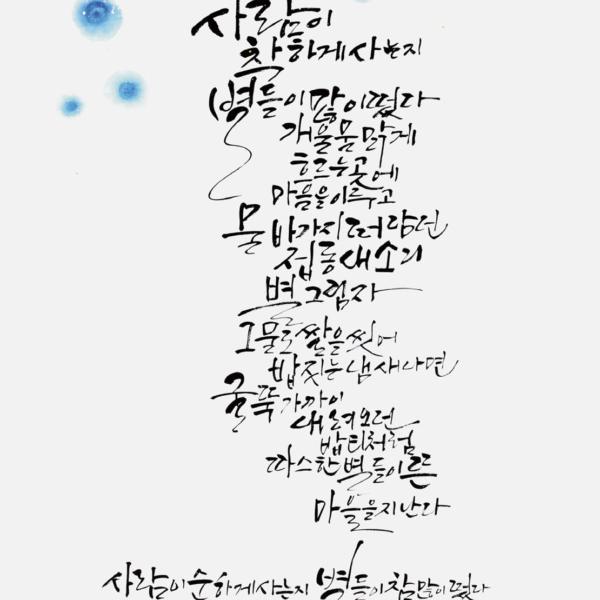 사람이
착하게 사는지
별들이 많이 떴다
개울물 맑게
흐르는 곳에
마을을 이루고
물 바가지 떠담던
접동새 소리
별 그림자
그 물로 쌀을 씻어
밥 짓는 냄새 나면
굴뚝 가까이
내려오던
밥티처럼
따스한 별들이 뜬
마을을 지난다
사람들이 순하게 사는지 별들이 참 많이 떴다